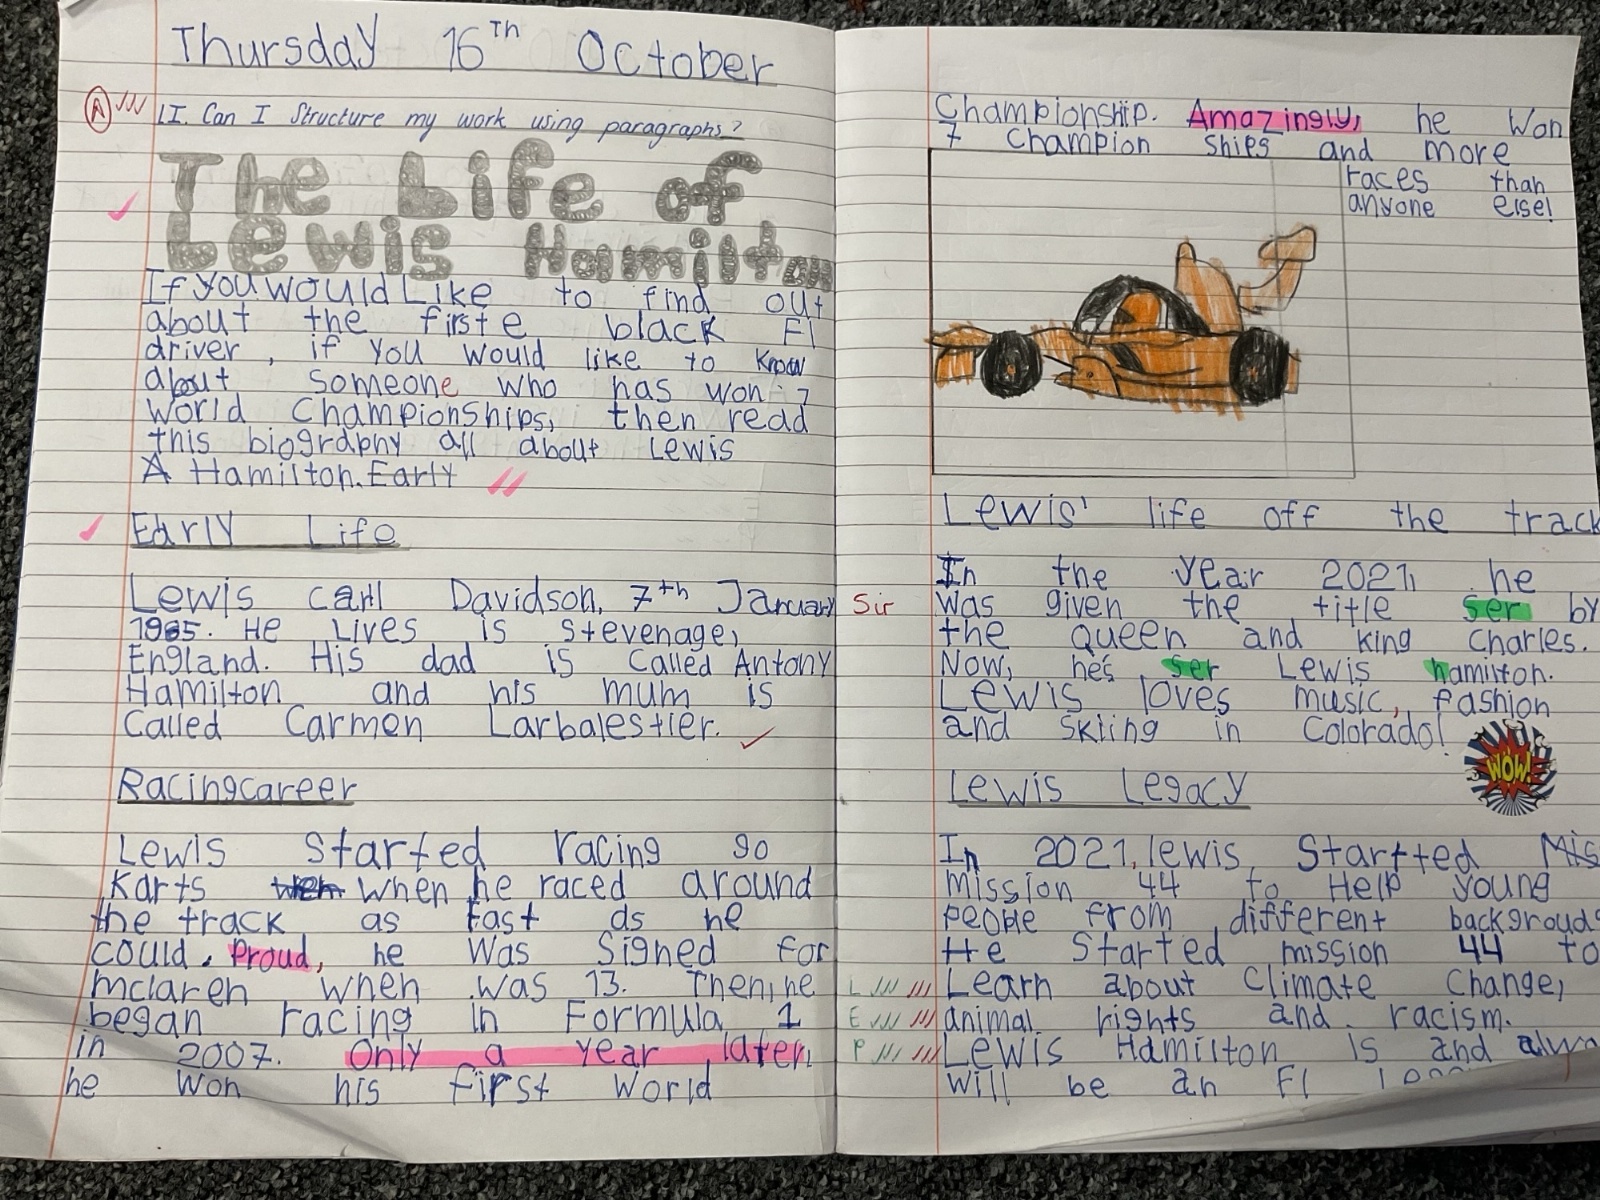 Thursday 16th October
A LI. Can I structure my work using paragraphs?
The Life of
Lewis Hamilton
If you would Like to find out
about the firste black F1
driver, if you would like to know
about someone who has won 7
world championships, then read
this biography all about Lewis
A Hamilton. Early
Early Life
Lewis carl Davidson, 7th January
1985. He Lives is stevenage,
England. His dad is called Antony
Hamilton and his mum is
called Carmen Larbalestier.
Racingcareer
Lewis started racing go
karts when he raced around
the track as fast as he
could. Proud, he was signed for
mclaren when was 13. Then, he
began racing in Formula 1
in 2007. Only a year later,
he won his first world
Championship. Amazingly, he won
7 champion ships and more
races than
anyone else!
Lewis' life off the track
In the year 2021, he
Sir was given the title ser by
the queen and king charles.
Now, he's ser Lewis hamilton.
Lewis loves music, fashion
and skiing in Colorado!
WOW!
Lewis Legacy
In 2021, lewis startted Mis
mission 44 to Help young
people from different backgrouds
He started mission 44 to
L Learn about climate change,
E animal rights and racism.
P Lewis Hamilton is and
will be an F1